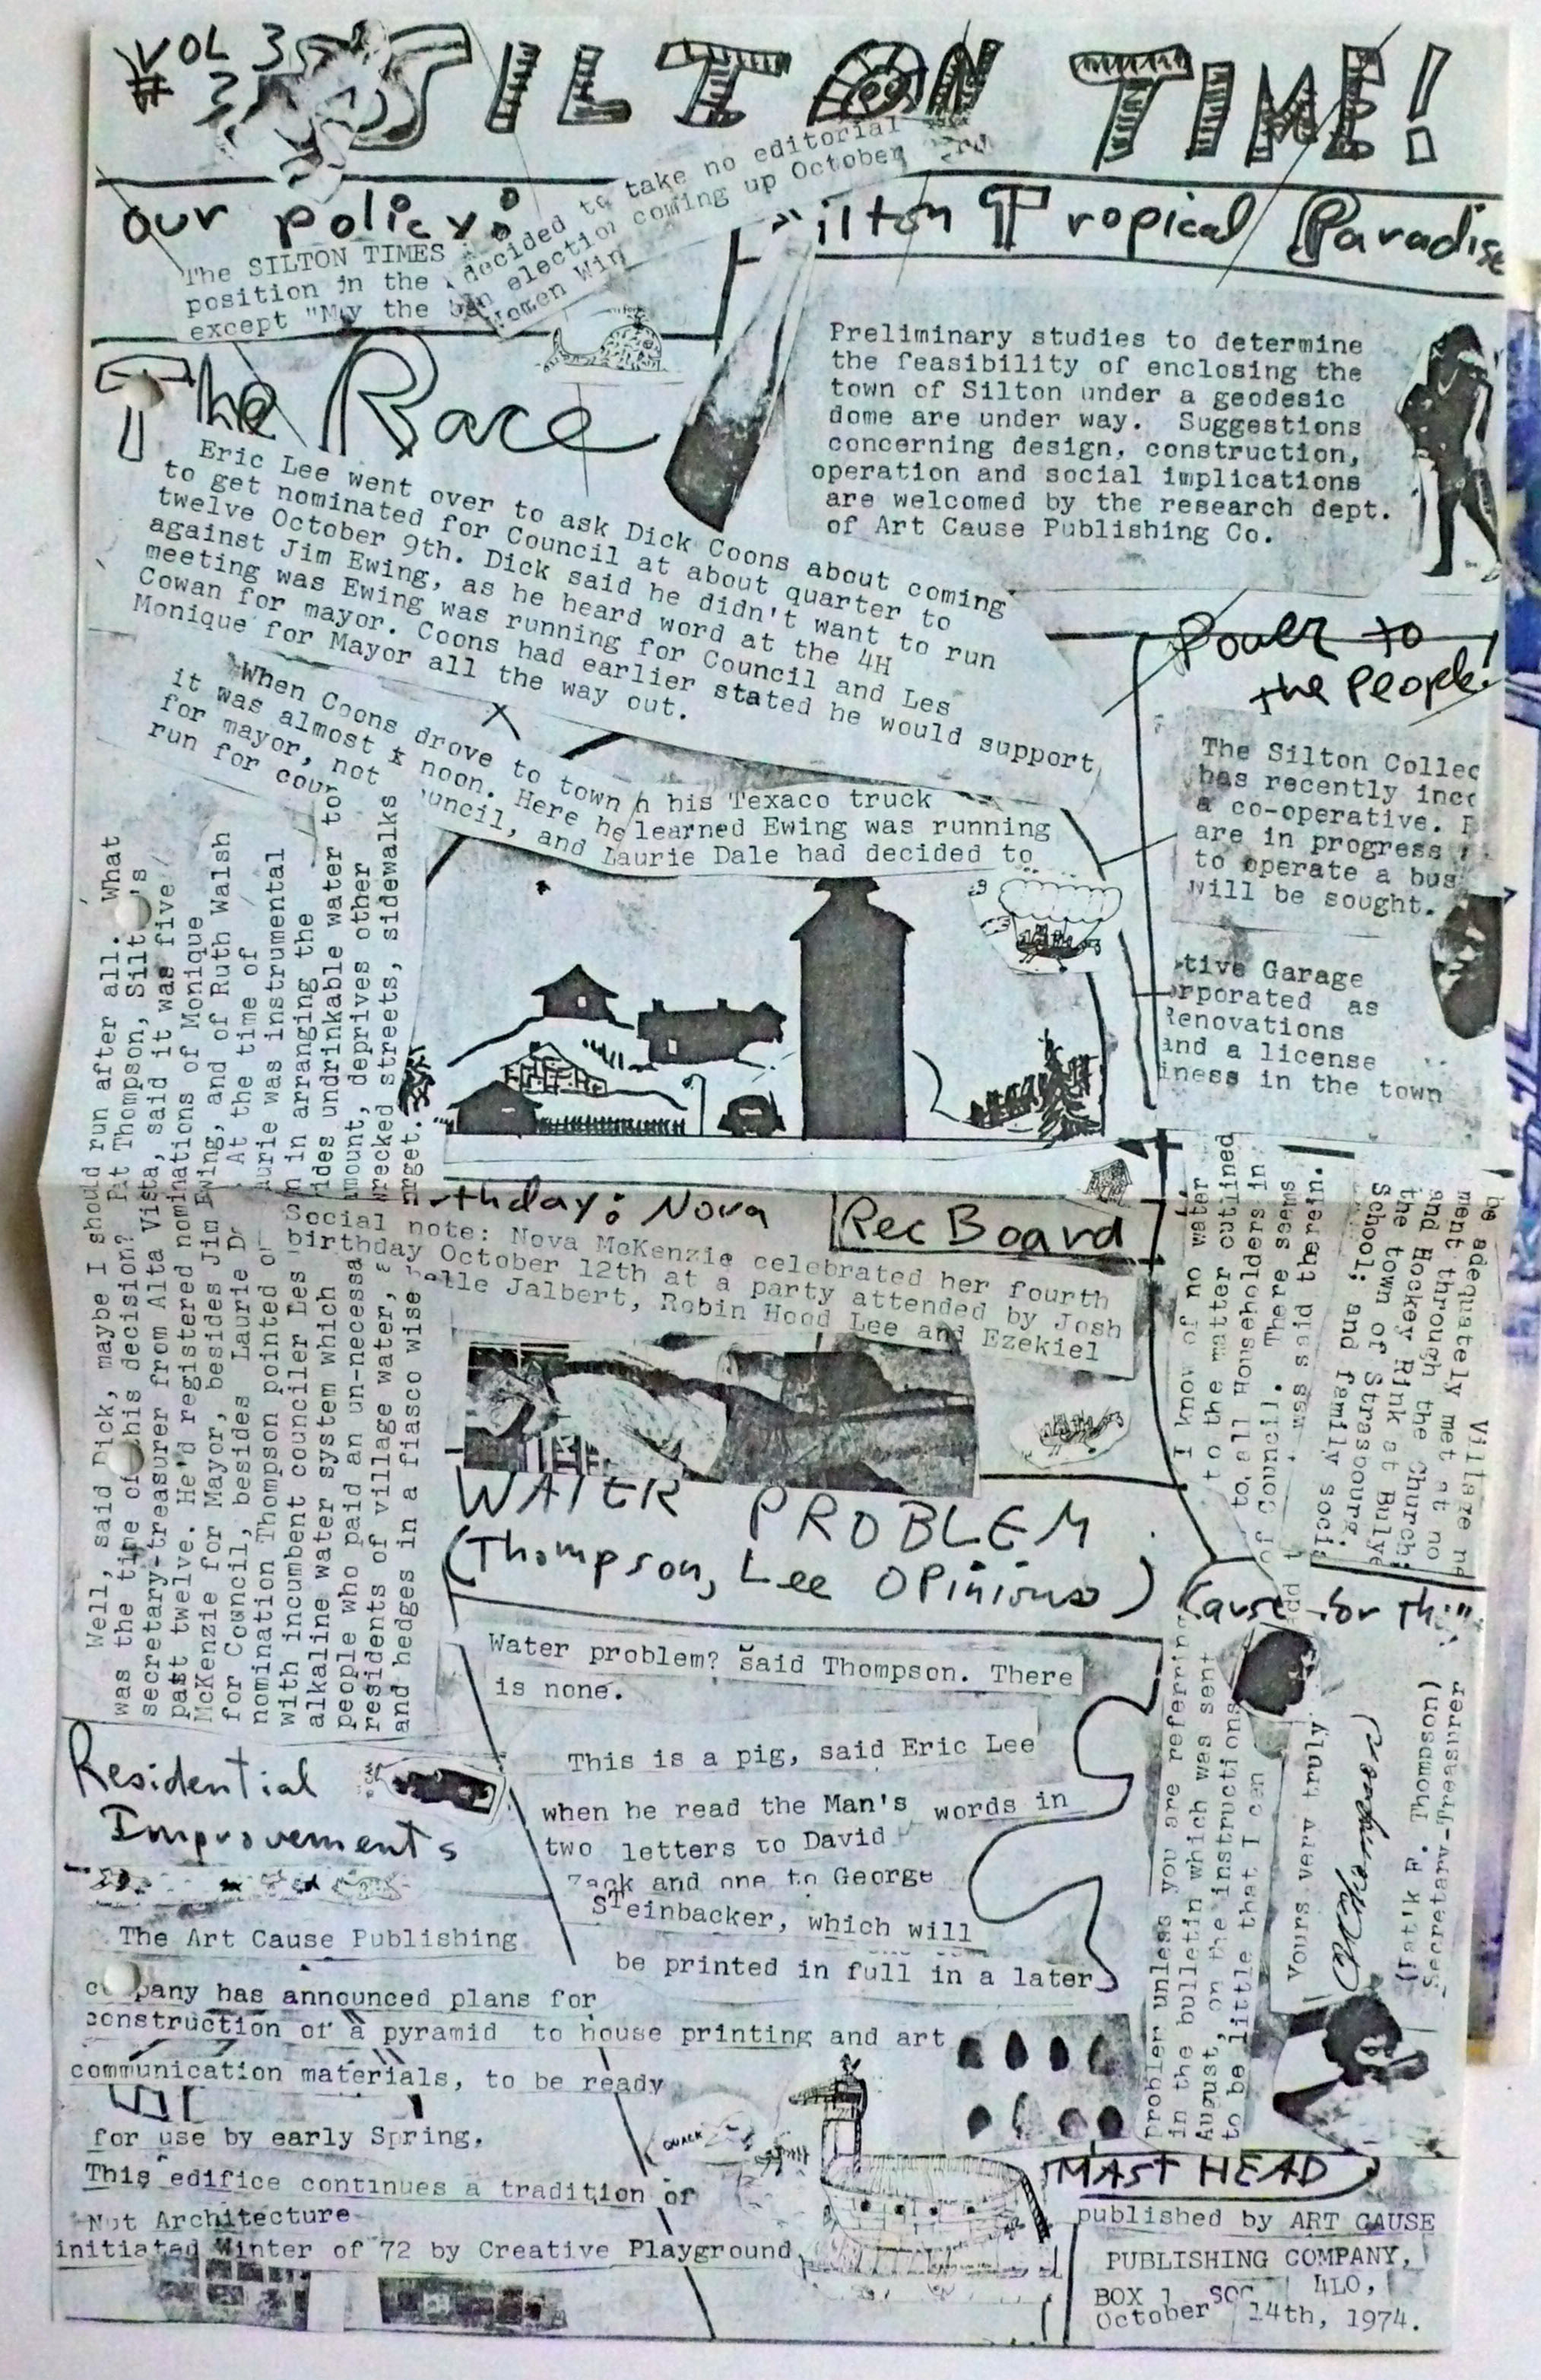 VOL 3
# 3
SILTON TIME!
our policy:
The SILTON TIMES decided to take no editorial
position in the election coming up October
except "May the Women Win
Silton Tropical Paradise
Preliminary studies to determine
the feasibility of enclosing the
town of Silton under a geodesic
dome are under way. Suggestions
concerning design, construction,
operation and social implications
are welcomed by the research dept.
of Art Cause Publishing Co.
The Race
Eric Lee went over to ask Dick Coons about coming
to get nominated for Council at about quarter to
twelve October 9th. Dick said he didn't want to run
against Jim Ewing, as he heard word at the 4H
meeting was Ewing was running for Council and Les
Cowan for mayor. Coons had earlier stated he would support
Monique for Mayor all the way out.
When Coons drove to town in his Texaco truck
it was almost noon. Here he learned Ewing was running
for mayor, not council, and Laurie Dale had decided to
run for council
Well, said Dick, maybe I should run after all. What
was the time of this decision? Pat Thompson, Silton's
secretary-treasurer from Alta Vista, said it was five
past twelve. He'd registered nominations of Monique
McKenzie for Mayor, besides Jim Ewing, and of Ruth Walsh
for Council, besides Laurie D At the time of
nomination Thompson pointed Laurie was instrumental
with incumbent councilor Les in arranging the
alkaline water system which ides undrinkable water to
people who paid an un-necessa amount, deprives other
residents of village water, wrecked streets, sidewalks
and hedges in a fiasco wise
Power to
the People!
The Silton Collec
has recently inco
a co-operative.
are in progress
to operate a bus
will be sought.
tive Garage
orporated as
Renovations
and a license
iness in the town
rthday: Nova
Social note: Nova McKenzie celebrated her fourth
birthday October 12th at a party attended by Josh
elle Jalbert, Robin Hood Lee and Ezekiel
Rec Board
Village
be adequately met at no
ment through the Church;
and Hockey Rink at Bulye
the town of Strasbourg;
School; and family soci
WATER PROBLEM
(Thompson, Lee Opinions)
Water problem? said Thompson. There
is none.
This is a pig, said Eric Lee
when he read the Man's words in
two letters to David
Zack and one to George
STeinbacker, which will
be printed in full in a later
I know of no water
problem unless you are referring to the matter outlined
in the bulletin which was sent to all Householders in
August, on the instructions of Council. There seems
to be little that I can add was said therein.
Cause for Th
Yours very truly
(Pat'k F. Thompson)
Secretary-Treasurer
Residential
Improvements
The Art Cause Publishing
company has announced plans for
construction of a pyramid to house printing and art
communication materials, to be ready
for use by early Spring.
This edifice continues a tradition of
Not Architecture
initiated Winter of '72 by Creative Playground
QUACK
MAST HEAD
published by ART CAUSE
PUBLISHING COMPANY,
BOX 1 SOG 4L0,
October 14th, 1974.